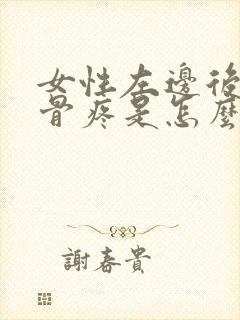 女性左邊後
骨疼是怎麼
謝春貴